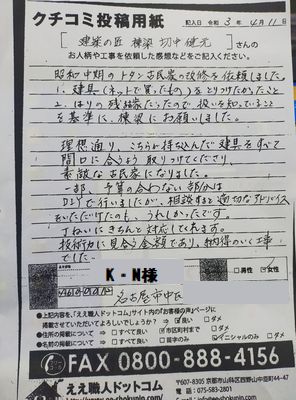 クチコミ投稿用紙
記入日 令和 3年 4月11日
[建築の匠 棟梁 切中健元]さんの
お人柄や工事を依頼した感想などをご記入ください。
昭和中期のトタン古民家の改修を依頼しました。
1. 建具(ネットで買ったもの)をとりつけたかったこと
2. はりの残る家だったので扱いを知っていること
を基準に、棟梁にお願いしました。
理想通り、こちらが持ちこんだ建具をすべて
間口に合うよう取りつけてくださり、
素敵な古民家になりました。
一部、予算の合わない部分は
DIYで行いましたが、相談すると適切なアドバイス
をいただけたのも、うれしかったです。
丁ねいにきちんと対応してくれます。
技術力に見合う金額であり、納得のいく工事
でした。
K・N様
□男性
女性
名古屋市中区
●ご記入頂いた用紙を「ええ職人ドットコム」サイト内の「お客様の声」ページに
掲載させていただいてよろしいでしょうか? 良い □ダメ
●住所の掲載について ⇒ □すべて良い 市区町村まで □ダメ
●名前の掲載について ⇒ □すべて良い □苗字のみ イニシャルのみ □ダメ
FAX 0800-888-4156
ええ職人ドットコム
〒607-8305 京都市山科区西野山中臣町44-47
TEL 075-583-2801